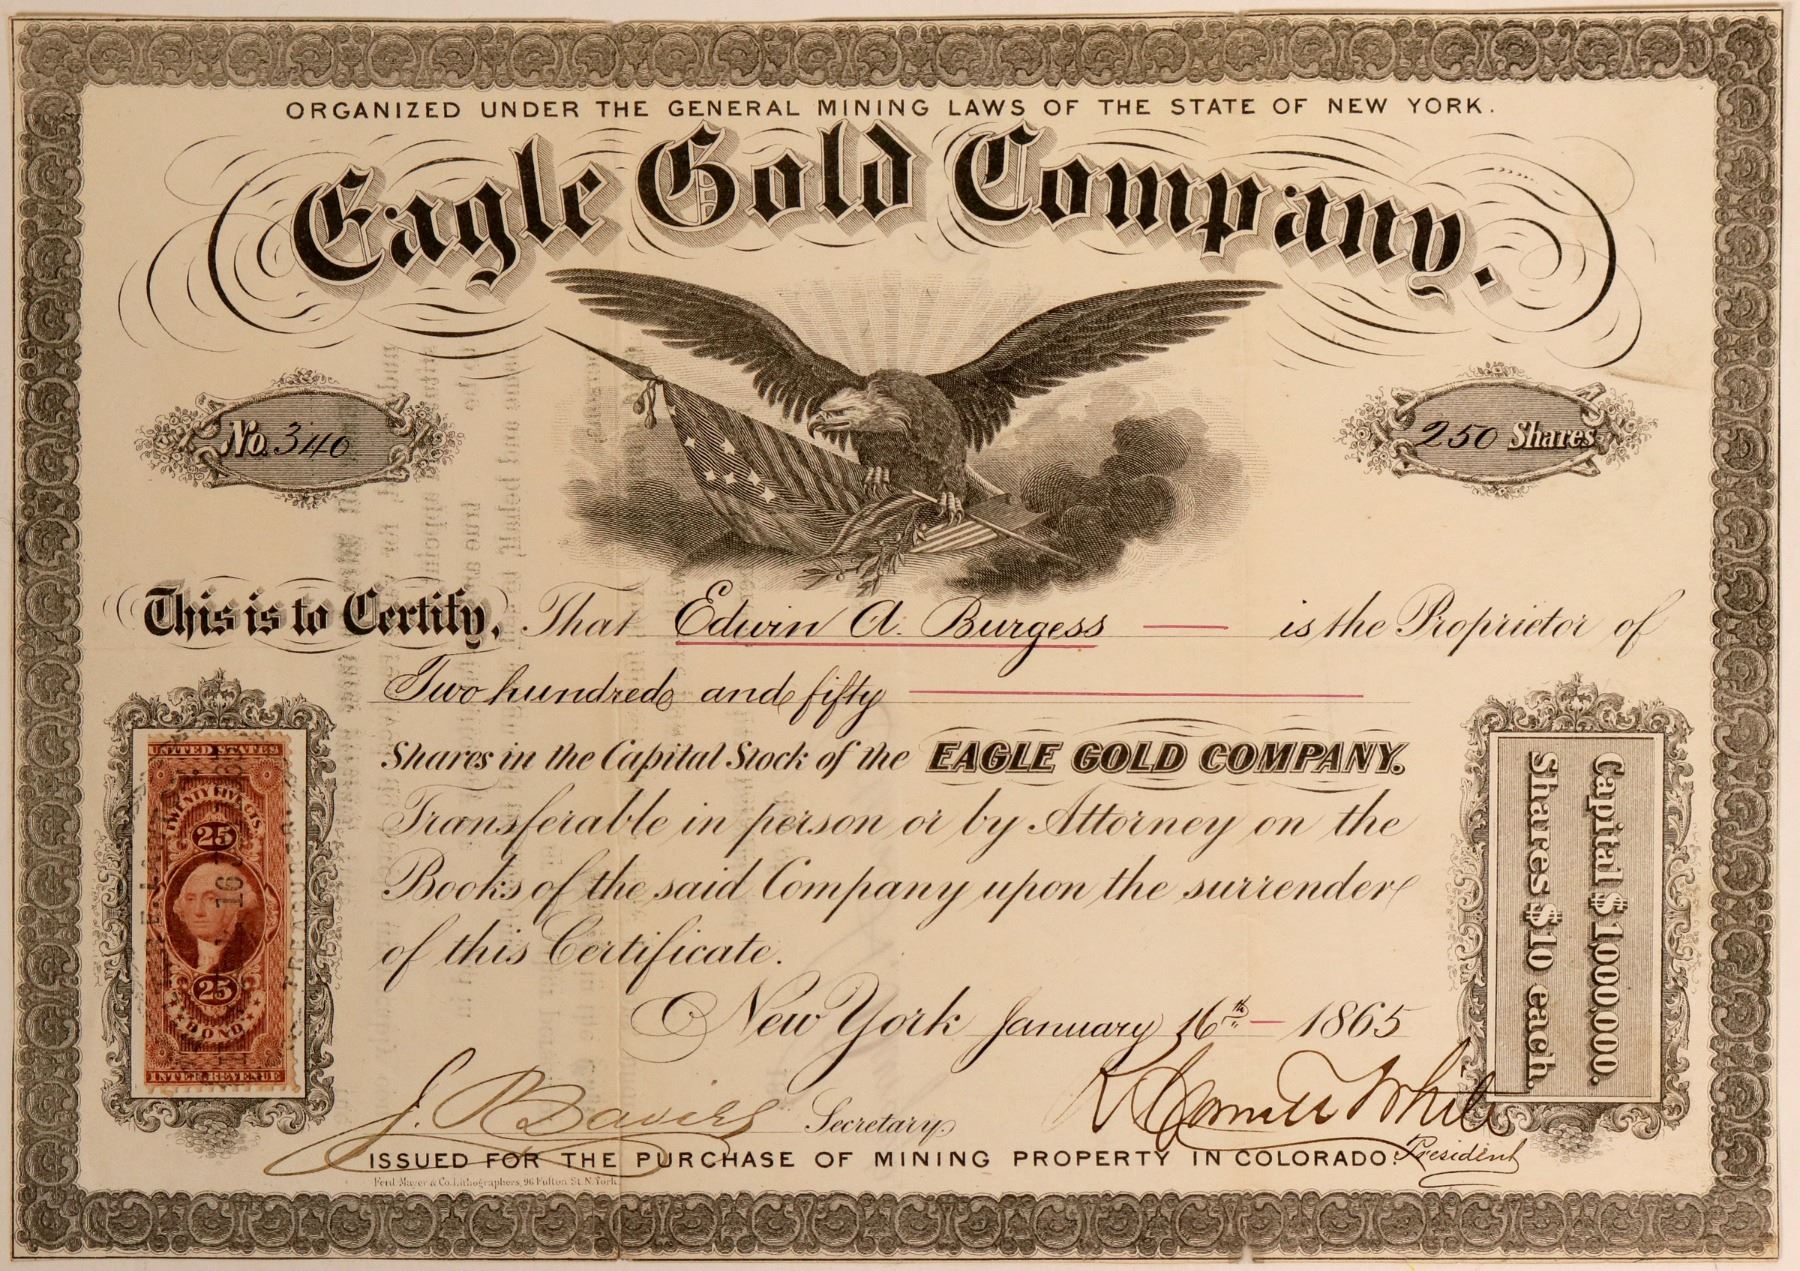 ORGANIZED UNDER THE GENERAL MINING LAWS OF THE STATE OF NEW YORK.
Eagle Gold Company.
No. 340
250 Shares
This is to Certify, That Edwin A. Burgess is the Proprietor of
Two hundred and fifty
Shares in the Capital Stock of the EAGLE GOLD COMPANY.
Transferable in person or by Attorney on the
Books of the said Company upon the surrender
of this Certificate.
New York January 16th 1865
UNITED STATES
TWENTY FIVE CTS.
25
16
25
BOND
INTER. REVENUE
Capital $1,000,000.
Shares $10 each.
Secretary
White
President
ISSUED FOR THE PURCHASE OF MINING PROPERTY IN COLORADO.
Ferd. Mayer & Co. Lithographers, 96 Fulton St. N. York.